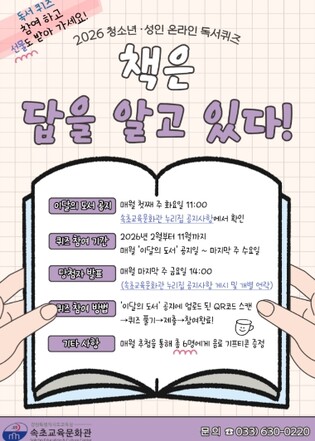 독서 퀴즈
참여 하고
선물도 받아 가세요!
2026 청소년·성인 온라인 독서퀴즈
책은
답을 알고 있다!
이달의 도서 공지 매월 첫째 주 화요일 11:00
속초교육문화관 누리집 공지사항에서 확인
퀴즈 참여 기간 2026년 2월부터 11월까지
매월 '이달의 도서' 공지일 ~ 마지막 주 수요일
당첨자 발표 매월 마지막 주 금요일 14:00
(속초교육문화관 누리집 공지사항 게시 및 개별 연락)
퀴즈 참여 방법 '이달의 도서' 공지에 업로드 된 QR코드 스캔
→퀴즈 풀기→제출→참여완료!
기타 사항 매월 추첨을 통해 총 6명에게 음료 기프티콘 증정
속초교육문화관
문의 ☎ 033) 630-0220